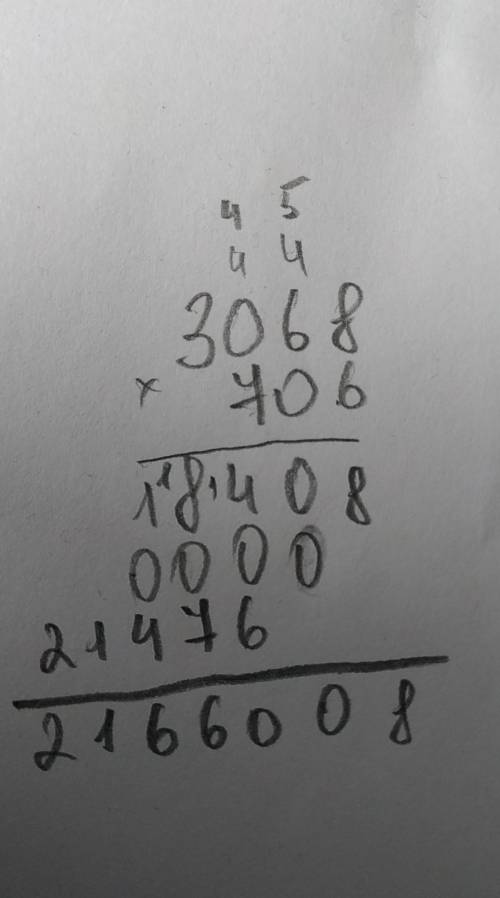 4 5
4 4
3068
× 706
1¹8¹408
0000
21476
2166008